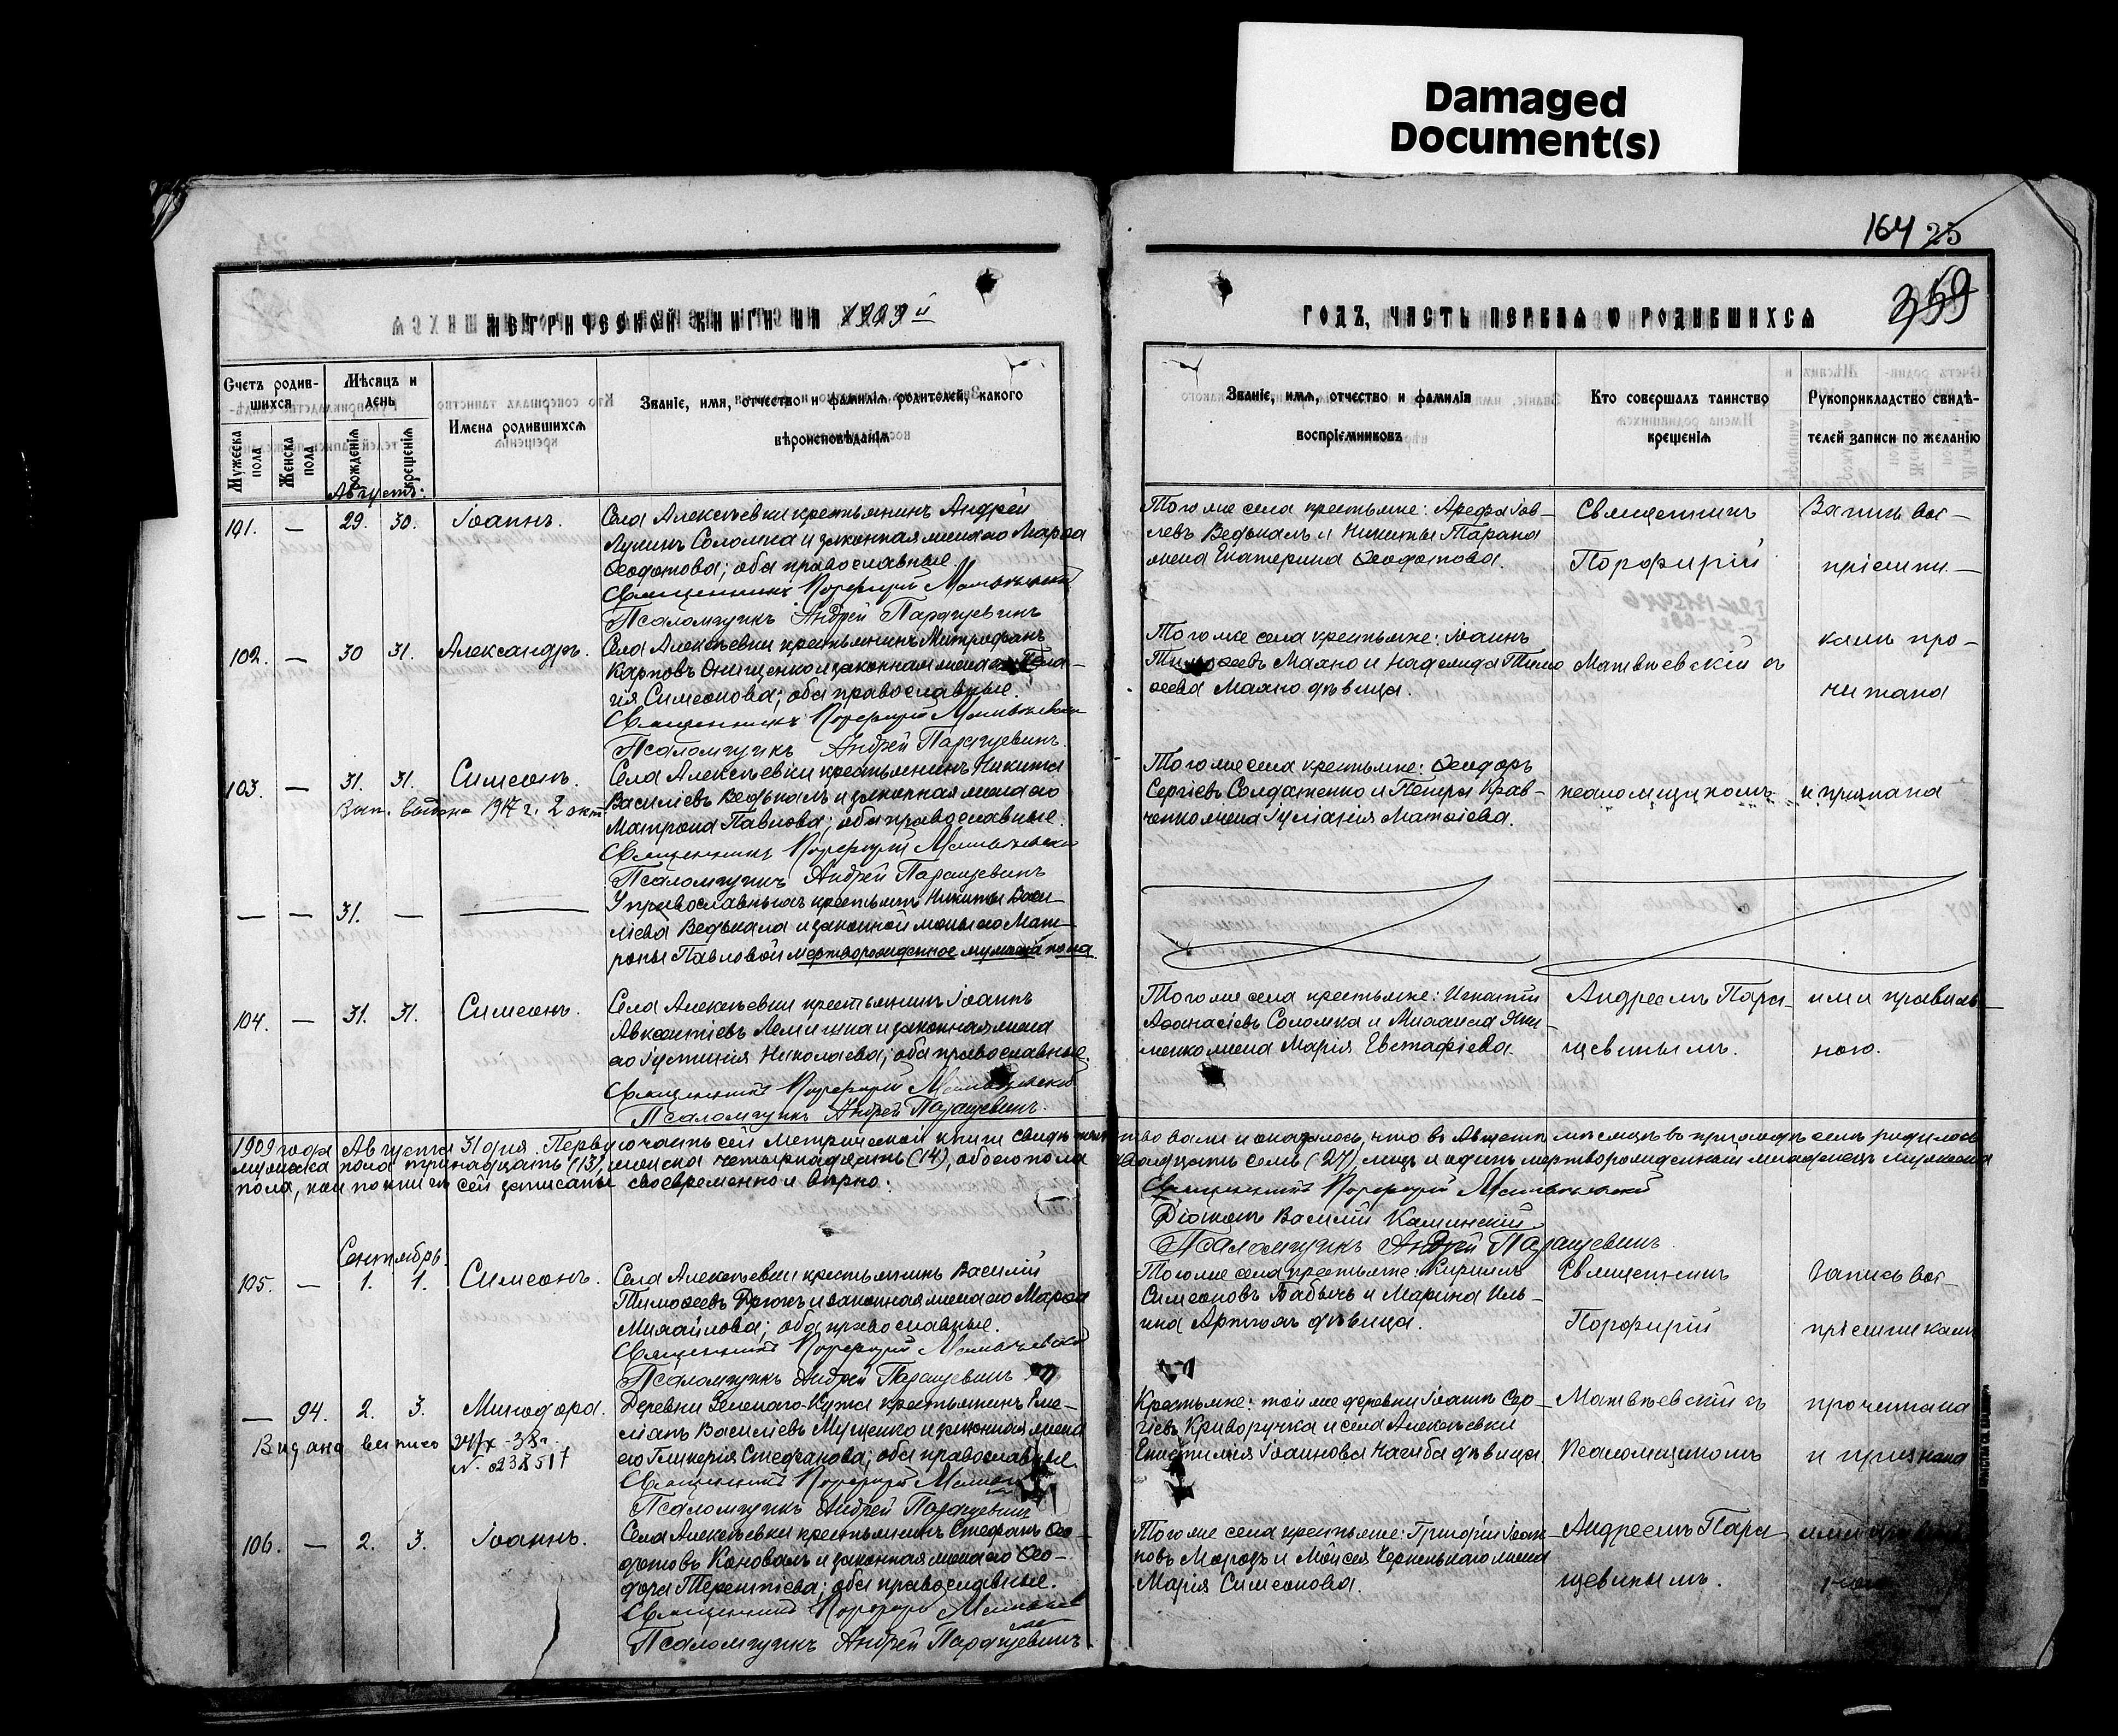 Damaged
Document(s)
164 25
359
МЕТРИЧЕСКОЙ КНИГИ НА 1909 й
ГОДЪ, ЧАСТЬ ПЕРВАЯ О РОДИВШИХСЯ
Счетъ родив-
шихся
Мужеска пола
Женска пола
Мѣсяцъ и
день
рожденія
крещенія
Имена родившихся
Званіе, имя, отчество и фамилія родителей, какого
вѣроисповѣданія
Званіе, имя, отчество и фамилія
воспріємниковъ
Кто совершалъ таинство
крещенія
Рукоприкладство свидѣ-
телей записи по желанію
Августъ.
101. — 29. 30. Іоаннъ.
Села Алексѣевки крестьянинъ Андрей
Лукинъ Соломка и законная жена его Марѳа
Ѳеодотова; оба православные.
Священникъ Порфирій
Псаломщикъ Андрей Паращевинъ
Того же села крестьяне: Арефа Іов-
левъ Ведькалъ и Никиты Тарана
жена Екатерина Ѳеодотова.
Священникъ
Порфирій
Запись вос-
пріемни-
102. — 30 31. Александръ.
Села Алексѣевки крестьянинъ Митрофанъ
Карповъ Онищенко и законная жена его Пела-
гія Симеонова; оба православные.
Священникъ Порфирій
Псаломщикъ Андрей Паращевинъ
Того же села крестьяне: Іоаннъ
Тимоѳеевъ Махно и Надежда Тимо
ѳеева Махно дѣвица.
Матвѣевскій съ
ками про-
читана
103. — 31. 31. Симеонъ.
Вып. выдана 1917 г. 2 окт.
Села Алексѣевки крестьянинъ Никита
Василіевъ Ведькалъ и законная жена его
Матрона Павлова; оба православные.
Священникъ Порфирій
Псаломщикъ Андрей Паращевинъ
Того же села крестьяне: Ѳеодоръ
Сергіевъ Солдатенко и Петра Крав-
ченко жена Іуліанія Матѳіева.
псаломщикомъ
и признана
— — 31. — —
У православныхъ крестьянъ Никиты Васи-
ліева Ведькала и законной жены его Мат-
роны Павловой мертворожденное мужска пола.
104. — 31. 31. Симеонъ.
Села Алексѣевки крестьянинъ Іоаннъ
Авксентіевъ и законная жена
его Іустинія Николаева; оба православные.
Священникъ Порфирій
Псаломщикъ Андрей Паращевинъ.
Того же села крестьяне: Игнатій
Аѳанасіевъ Соломка и Михаила Яки-
менко жена Марія Евстафіева.
Андреемъ Пара-
щевинымъ.
ими правиль-
ною.
1909 года Августа 31 дня. Первую часть сей метрической книги свидѣтельствовали и оказалось, что въ Августѣ мѣсяцѣ въ приходѣ семъ родилось
мужска пола тринадцать (13), женска четырнадцать (14), обоего пола двадцать семь (27), лицъ и одинъ мертворожденный младенецъ мужеска
пола, кои по книгѣ сей записаны своевременно и вѣрно:
Священникъ Порфирій
Діаконъ Василій Каминскій
Псаломщикъ Андрей Паращевинъ
Сентябрь.
105. — 1. 1. Симеонъ.
Села Алексѣевки крестьянинъ Василій
Тимоѳеевъ и законная жена его Марѳа
Михайлова; оба православные.
Священникъ Порфирій
Псаломщикъ Андрей Паращевинъ
Того же села крестьяне: Кириллъ
Симеоновъ Бабычъ и Марина Иль-
ина дѣвица.
Священникъ
Порфирій
Запись вос-
пріемниками
— 94. 2. 3. Минодора.
Видана выпись 24/X - 38г.
N.
Деревни Зеленаго-Кута крестьянинъ Еме-
ліанъ Василіевъ Мущенко и законная жена
его Гликерія Стефанова; оба православные
Священникъ Порфирій
Псаломщикъ Андрей Паращевинъ
Крестьяне: той же деревни Іоаннъ Сер-
гіевъ Криворучка и села Алексѣевки
Іоаннова дѣвица
Матвѣевскій съ
псаломщикомъ
прочитана
и признана
106. — 2. 3. Іоаннъ.
Села Алексѣевки крестьянинъ Стефанъ Ѳео-
дотовъ Коновалъ и законная жена его Ѳео-
дора Терентіева; оба православные.
Священникъ Порфирій
Псаломщикъ Андрей Паращевинъ
Того же села крестьяне: Григорій Іоан-
новъ Морозъ и Моисея Черненькаго жена
Марія Симеонова.
Андреемъ Пара-
щевинымъ.
ими